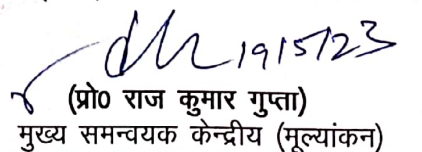 19/5/23
(प्रो0 राज कुमार गुप्ता)
मुख्य समन्वयक केन्द्रीय (मूल्यांकन)